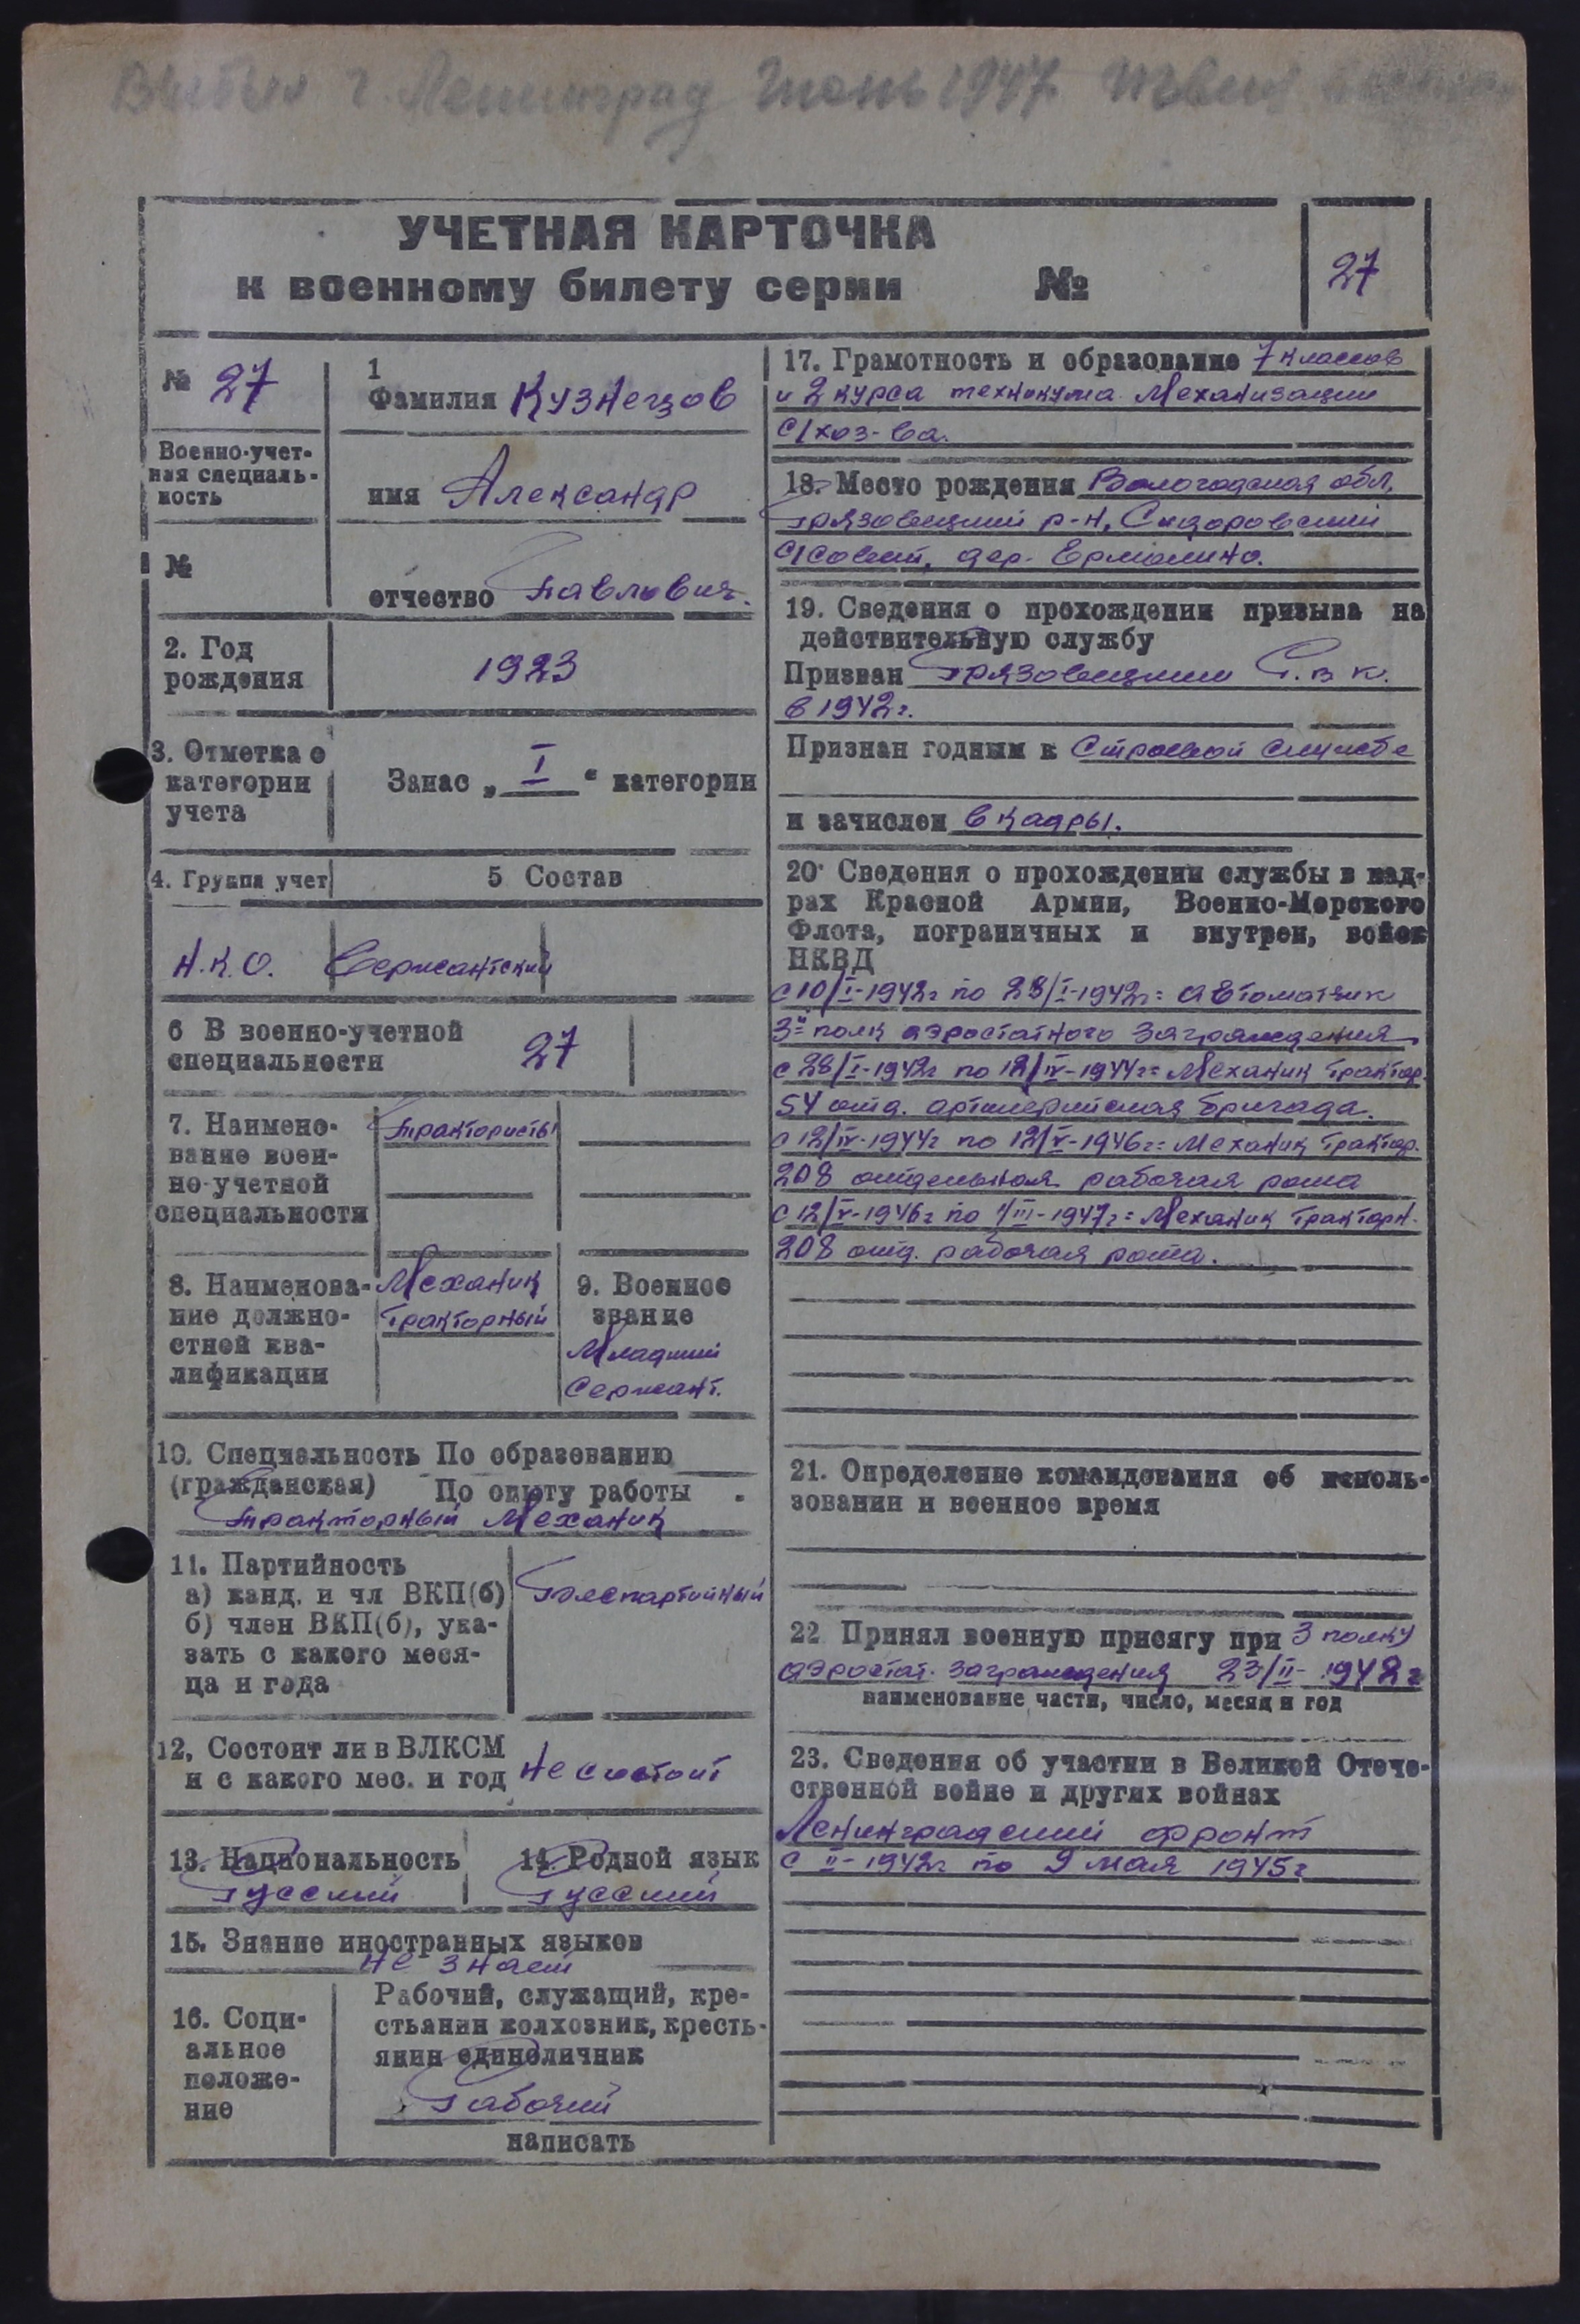 Выбыл г. Ленинград Июнь 1947
УЧЕТНАЯ КАРТОЧКА
к военному билету серии №
27
№ 27
1
Фамилия Кузнецов
Военно-учет-
ная специаль-
ность
имя Александр
№
отчество Павлович.
2. Год
рождения
1923
3. Отметка о
категории
учета
Запас „ I “ категории
4. Группа учет
5 Состав
Н.К.О. Сержантский
6 В военно-учетной
специальности
27
7. Наимено-
вание воен-
но-учетной
специальности
Трактористы
8. Наименова-
ние должно-
стной ква-
лификации
Механик
Тракторный
9. Военное
звание
Младший
Сержант.
10. Специальность По образованию
(гражданская) По опыту работы .
Тракторный Механик
11. Партийность
а) канд. и чл ВКП(б)
б) член ВКП(б), ука-
зать с какого меся-
ца и года
Беспартийный
12, Состоит ли в ВЛКСМ
и с какого мес. и год
Не состоит
13. Национальность
Русский
14. Родной язык
Русский
15. Знание иностранных языков
не знает
16. Соци-
альное
положе-
ние
Рабочий, служащий, кре-
стьянин колхозник, кресть-
янин единоличник
Рабочий
написать
17. Грамотность и образование 7 классов
и 2 курса техникума Механизации
с/хоз-ва.
18. Место рождения Вологодская обл,
Грязовецкий р-н, Сидоровский
с/совет, дер. Ермолино.
19. Сведения о прохождении призыва на
действительную службу
Призван Грязовецким Р.в к.
в 1942г.
Признан годным к Строевой службе
и зачислен в кадры.
20· Сведения о прохождении службы в кад-
рах Красной Армии, Военно-Морского
Флота, пограничных и внутрен, войск
НКВД
с 10/I-1942г по 28/I-1942г= автоматчик
3й полк аэростатного заграждения
с 28/I-1942г по 12/IV-1944г= Механик Трактор.
54 отд. артиллерийская бригада.
с 12/IV-1944г по 12/V-1946г= Механик Трактор.
208 отдельная рабочая рота
с 12/V-1946г по 1/III-1947г= Механик Тракторн.
208 отд. рабочая рота.
21. Определение командования об исполь-
зовании и военное время
22 Принял военную присягу при 3 полку
аэростат. заграждения 23/II- 1942г
наименование части, число, месяц и год
23. Сведения об участии в Великой Отече-
ственной войне и других войнах
Ленинградский фронт
с II-1942г по 9 мая 1945г